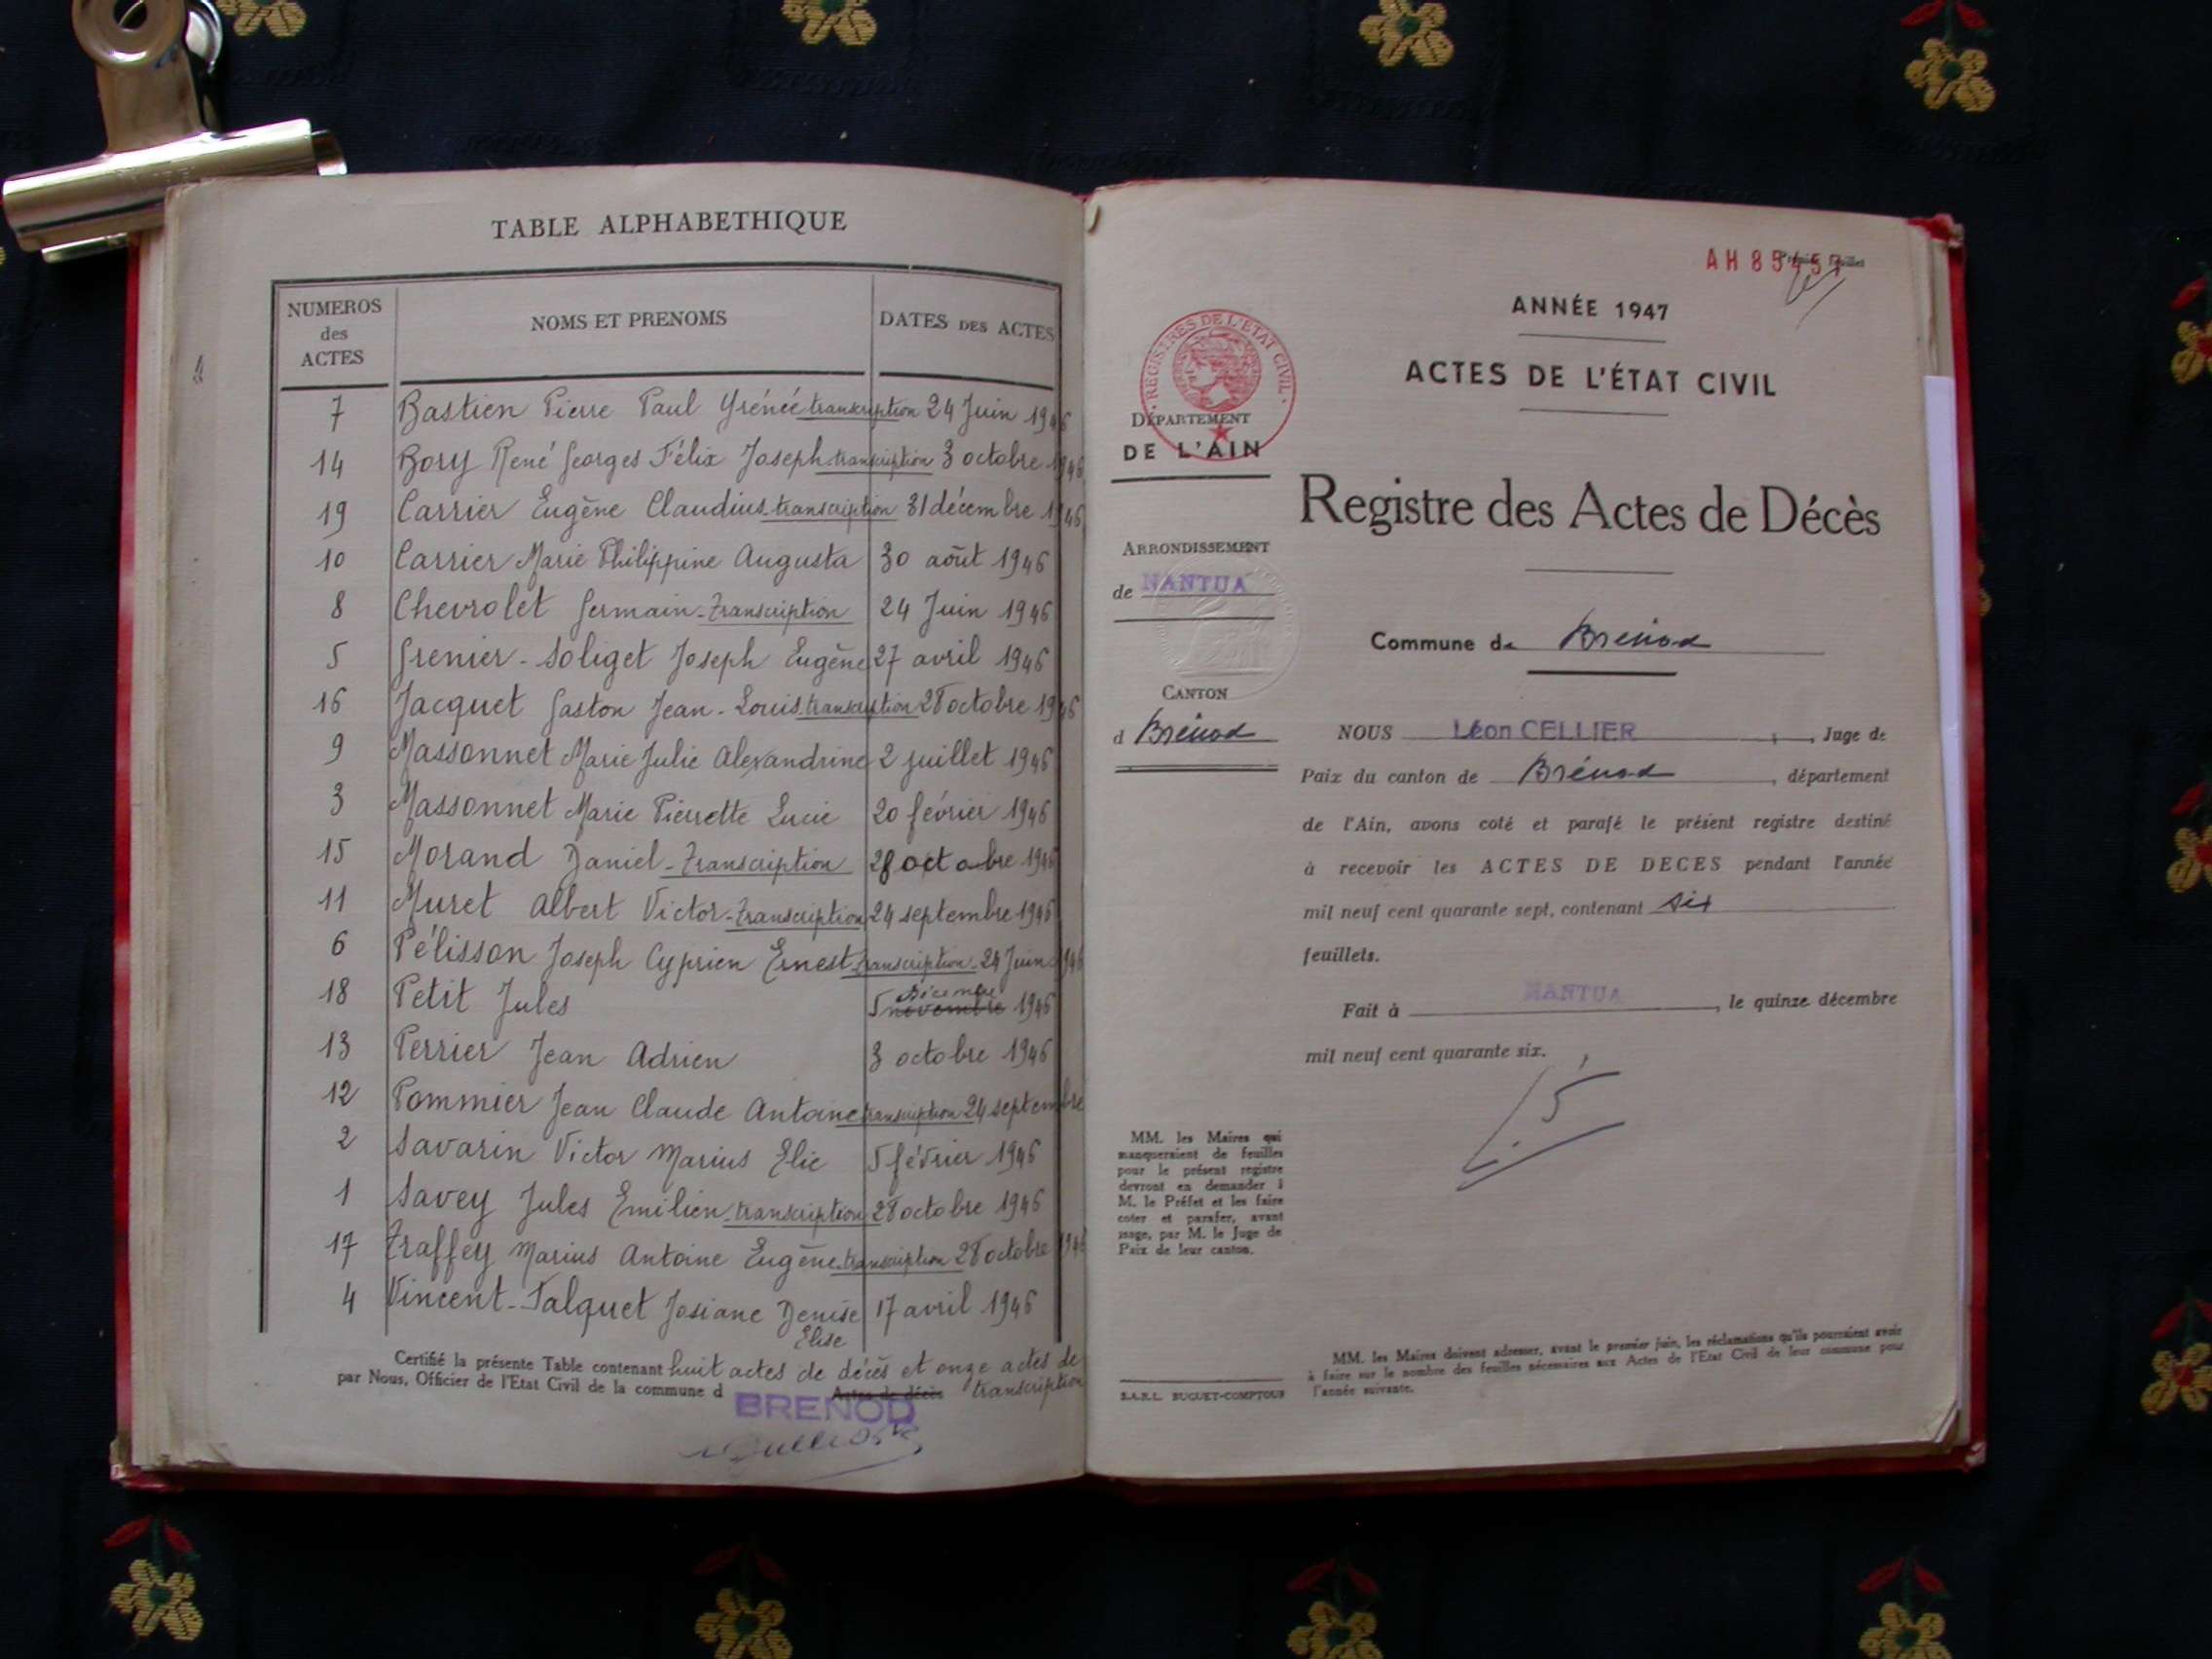 TABLE ALPHABETHIQUE
NUMEROS des ACTES | NOMS ET PRENOMS | DATES DES ACTES
7 Bastien Pierre Paul Yrénée transcription 24 Juin 1946
14 Bory René Georges Félix Joseph transcription 3 octobre 1946
19 Carrier Eugène Claudius transcription 31 décembre 1946
10 Carrier Marie Philippine Augusta 30 août 1946
8 Chevrolet Germain - Transcription 24 Juin 1946
5 Grenier - Soliget Joseph Eugène 27 avril 1946
16 Jacquet Gaston Jean - Louis transcription 28 octobre 1946
9 Massonnet Marie Julie Alexandrine 2 juillet 1946
3 Massonnet Marie Pierrette Lucie 20 février 1946
15 Morand Daniel - Transcription 28 octobre 1946
11 Muret Albert Victor - Transcription 24 septembre 1946
6 Pélisson Joseph Cyprien Ernest transcription - 24 Juin 1946
18 Petit Jules 5 novembre Décembre 1946
13 Perrier Jean Adrien 3 octobre 1946
12 Pommier Jean Claude Antoine transcription 24 septembre
2 Savarin Victor Marius Elie 5 février 1946
1 Savey Jules Emilien - transcription 28 octobre 1946
17 Traffey Marius Antoine Eugène - transcription 28 octobre 1946
4 Vincent - Falquet Josiane Denise 17 avril 1946
Elise
Certifié la présente Table contenant huit actes de décès et onze actes de
par Nous, Officier de l'Etat Civil de la commune d BRENOD Actes de décès transcription
AH 85457
Premier feuillet
ANNÉE 1947
ACTES DE L'ÉTAT CIVIL
REGISTRES DE L'ETAT CIVIL
DÉPARTEMENT
DE L'AIN
Registre des Actes de Décès
ARRONDISSEMENT
de NANTUA
Commune de Brénod
CANTON
d Brénod
NOUS Léon CELLIER, Juge de
Paix du canton de Brénod, département
de l'Ain, avons coté et parafé le présent registre destiné
à recevoir les ACTES DE DECES pendant l'année
mil neuf cent quarante sept, contenant six
feuillets.
Fait à NANTUA, le quinze décembre
mil neuf cent quarante six.
MM. les Maires qui
manqueraient de feuilles
pour le présent registre
devront en demander à
M. le Préfet et les faire
coter et parafer, avant
usage, par M. le Juge de
Paix de leur canton.
MM. les Maires doivent adresser, avant le premier juin, les réclamations qu'ils pourraient avoir
à faire sur le nombre des feuilles nécessaires aux Actes de l'Etat Civil de leur commune pour
l'année suivante.
S.A.R.L. BUGUET-COMPTOUR